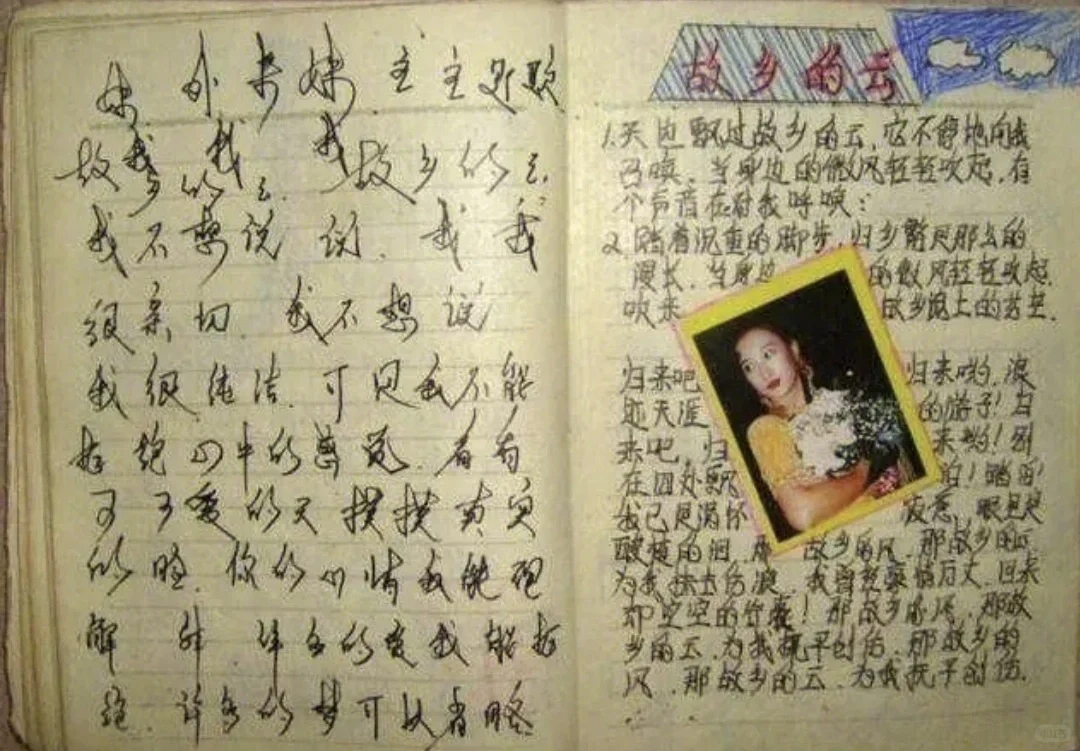 妹 外 来 妹 主 主题歌
故我 我 我 故乡的云
乡的云
我不想说 说 我 我
很亲切 我不想说
我很纯洁 可是我不能
拒绝心中的感觉 看看
可 可爱的天 摸摸真实
的脸 你的心情我能理
解 许 许多的爱我能拒
绝 许多的梦可以省略
故乡的云
1.天边飘过故乡的云,它不停地向我
召唤,当身边的微风轻轻吹起,有
个声音在对我呼唤:
2.踏着沉重的脚步,归乡路是那么的
漫长,当身边 的微风轻轻吹起
吹来 故乡泥土的芬芳.
归来吧 归来哟,浪
迹天涯 的游子!归
来吧,归 来哟!别
在四处飘 泊!踏着
我已是满怀 疲惫,眼里是
酸楚的泪,那 故乡的风,那故乡的云
为我抹去伤痕,我曾经豪情万丈,归来
却空空的行囊!那故乡的风,那故
乡的云,为我抚平创伤,那故乡的
风,那故乡的云,为我抚平创伤.